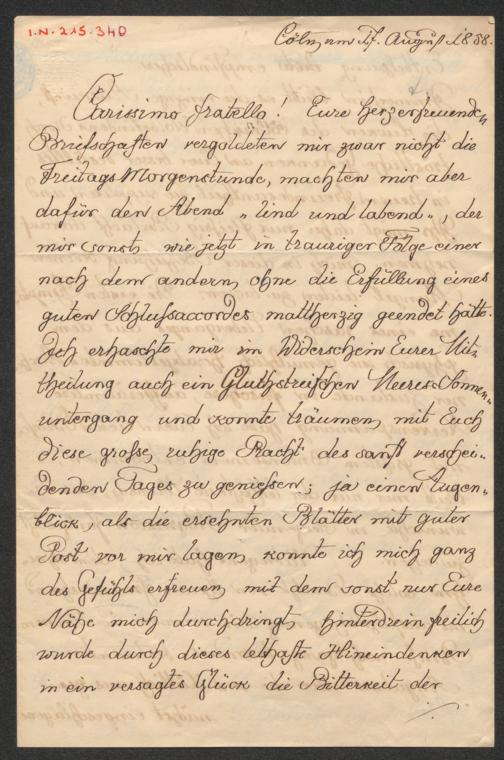 I.N. 215.340
Cöln, am 17. August 1888.
Carissimo fratello! Eure herzerfreuenden
Briefschaften vergoldeten mir zwar nicht die
Freitags Morgenstunde, machten mir aber
dafür den Abend „lind und labend“, der
mir sonst, wie jetzt in trauriger Folge einer
nach dem andern, ohne die Erfüllung eines
guten Schlussaccordes mattherzig geendet hätte.
Ich erhaschte mir im Widerschein Eurer Mit-
theilung auch ein Gluthstreifchen Meeres-Sonnen-
untergang und konnte träumen, mit Euch
diese große, ruhige Pracht des sanft verschei-
denden Tages zu genießen; ja einen Augen-
blick, als die ersehnten Blätter mit guter
Post vor mir lagen, konnte ich mich ganz
des Gefühls erfreuen, mit dem sonst nur Eure
Nähe mich durchdringt, hinterdrein freilich
wurde durch dieses lebhafte Hineindenken
in ein versagtes Glück die Bitterkeit der